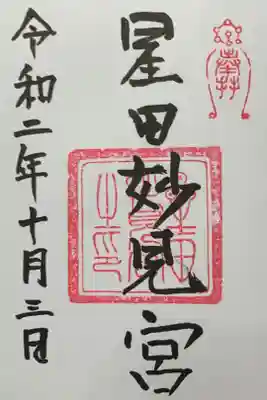 星田妙見宮
令和二年十月三日